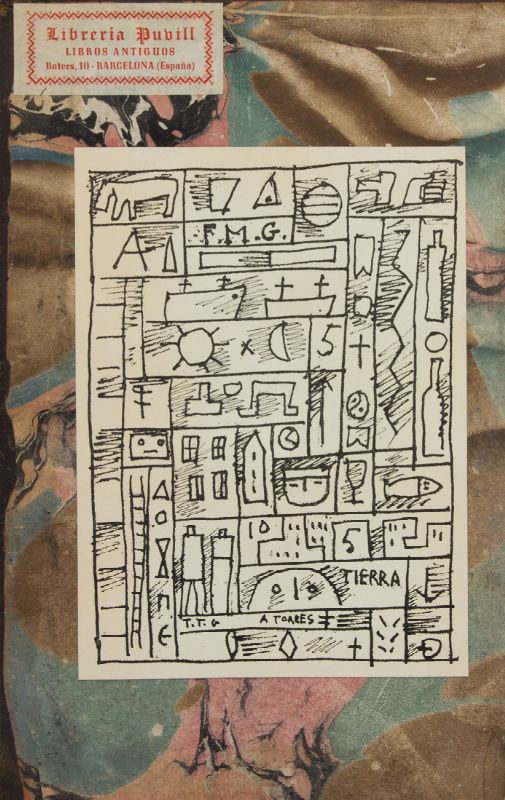 Librería Puvill
LIBROS ANTIGUOS
Boters, 10 - BARCELONA (España)
F.M.G.
5
10
5
TIERRA
T.T.G
A TORRES